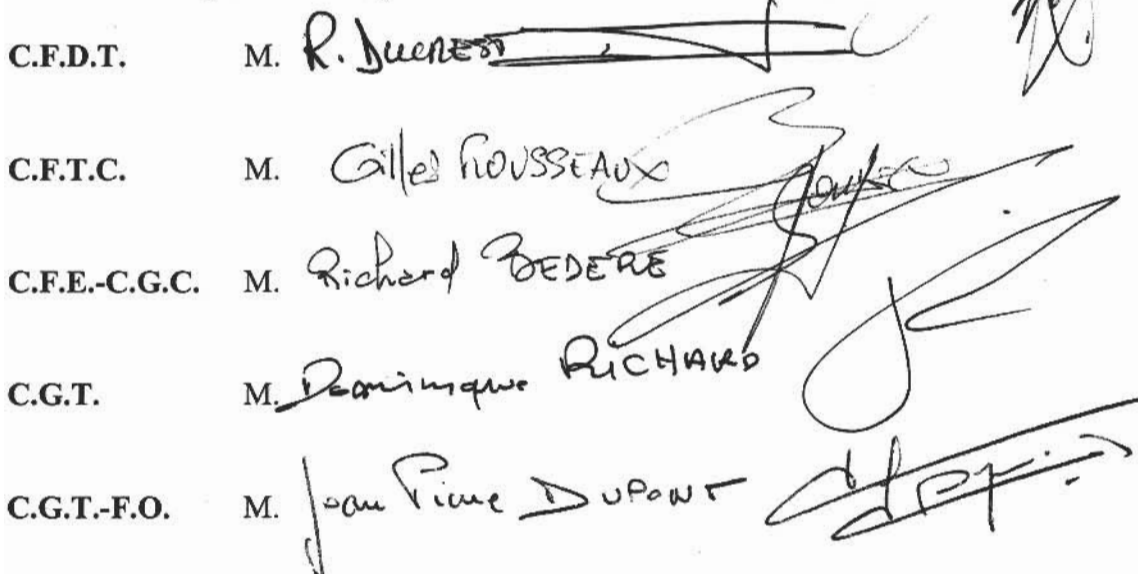 C.F.D.T. M. R. DUCREST
C.F.T.C. M. Gilles ROUSSEAUX
C.F.E.-C.G.C. M. Richard BEDERE
C.G.T. M. Dominique RICHARD
C.G.T.-F.O. M. Jean Pierre DUPONT